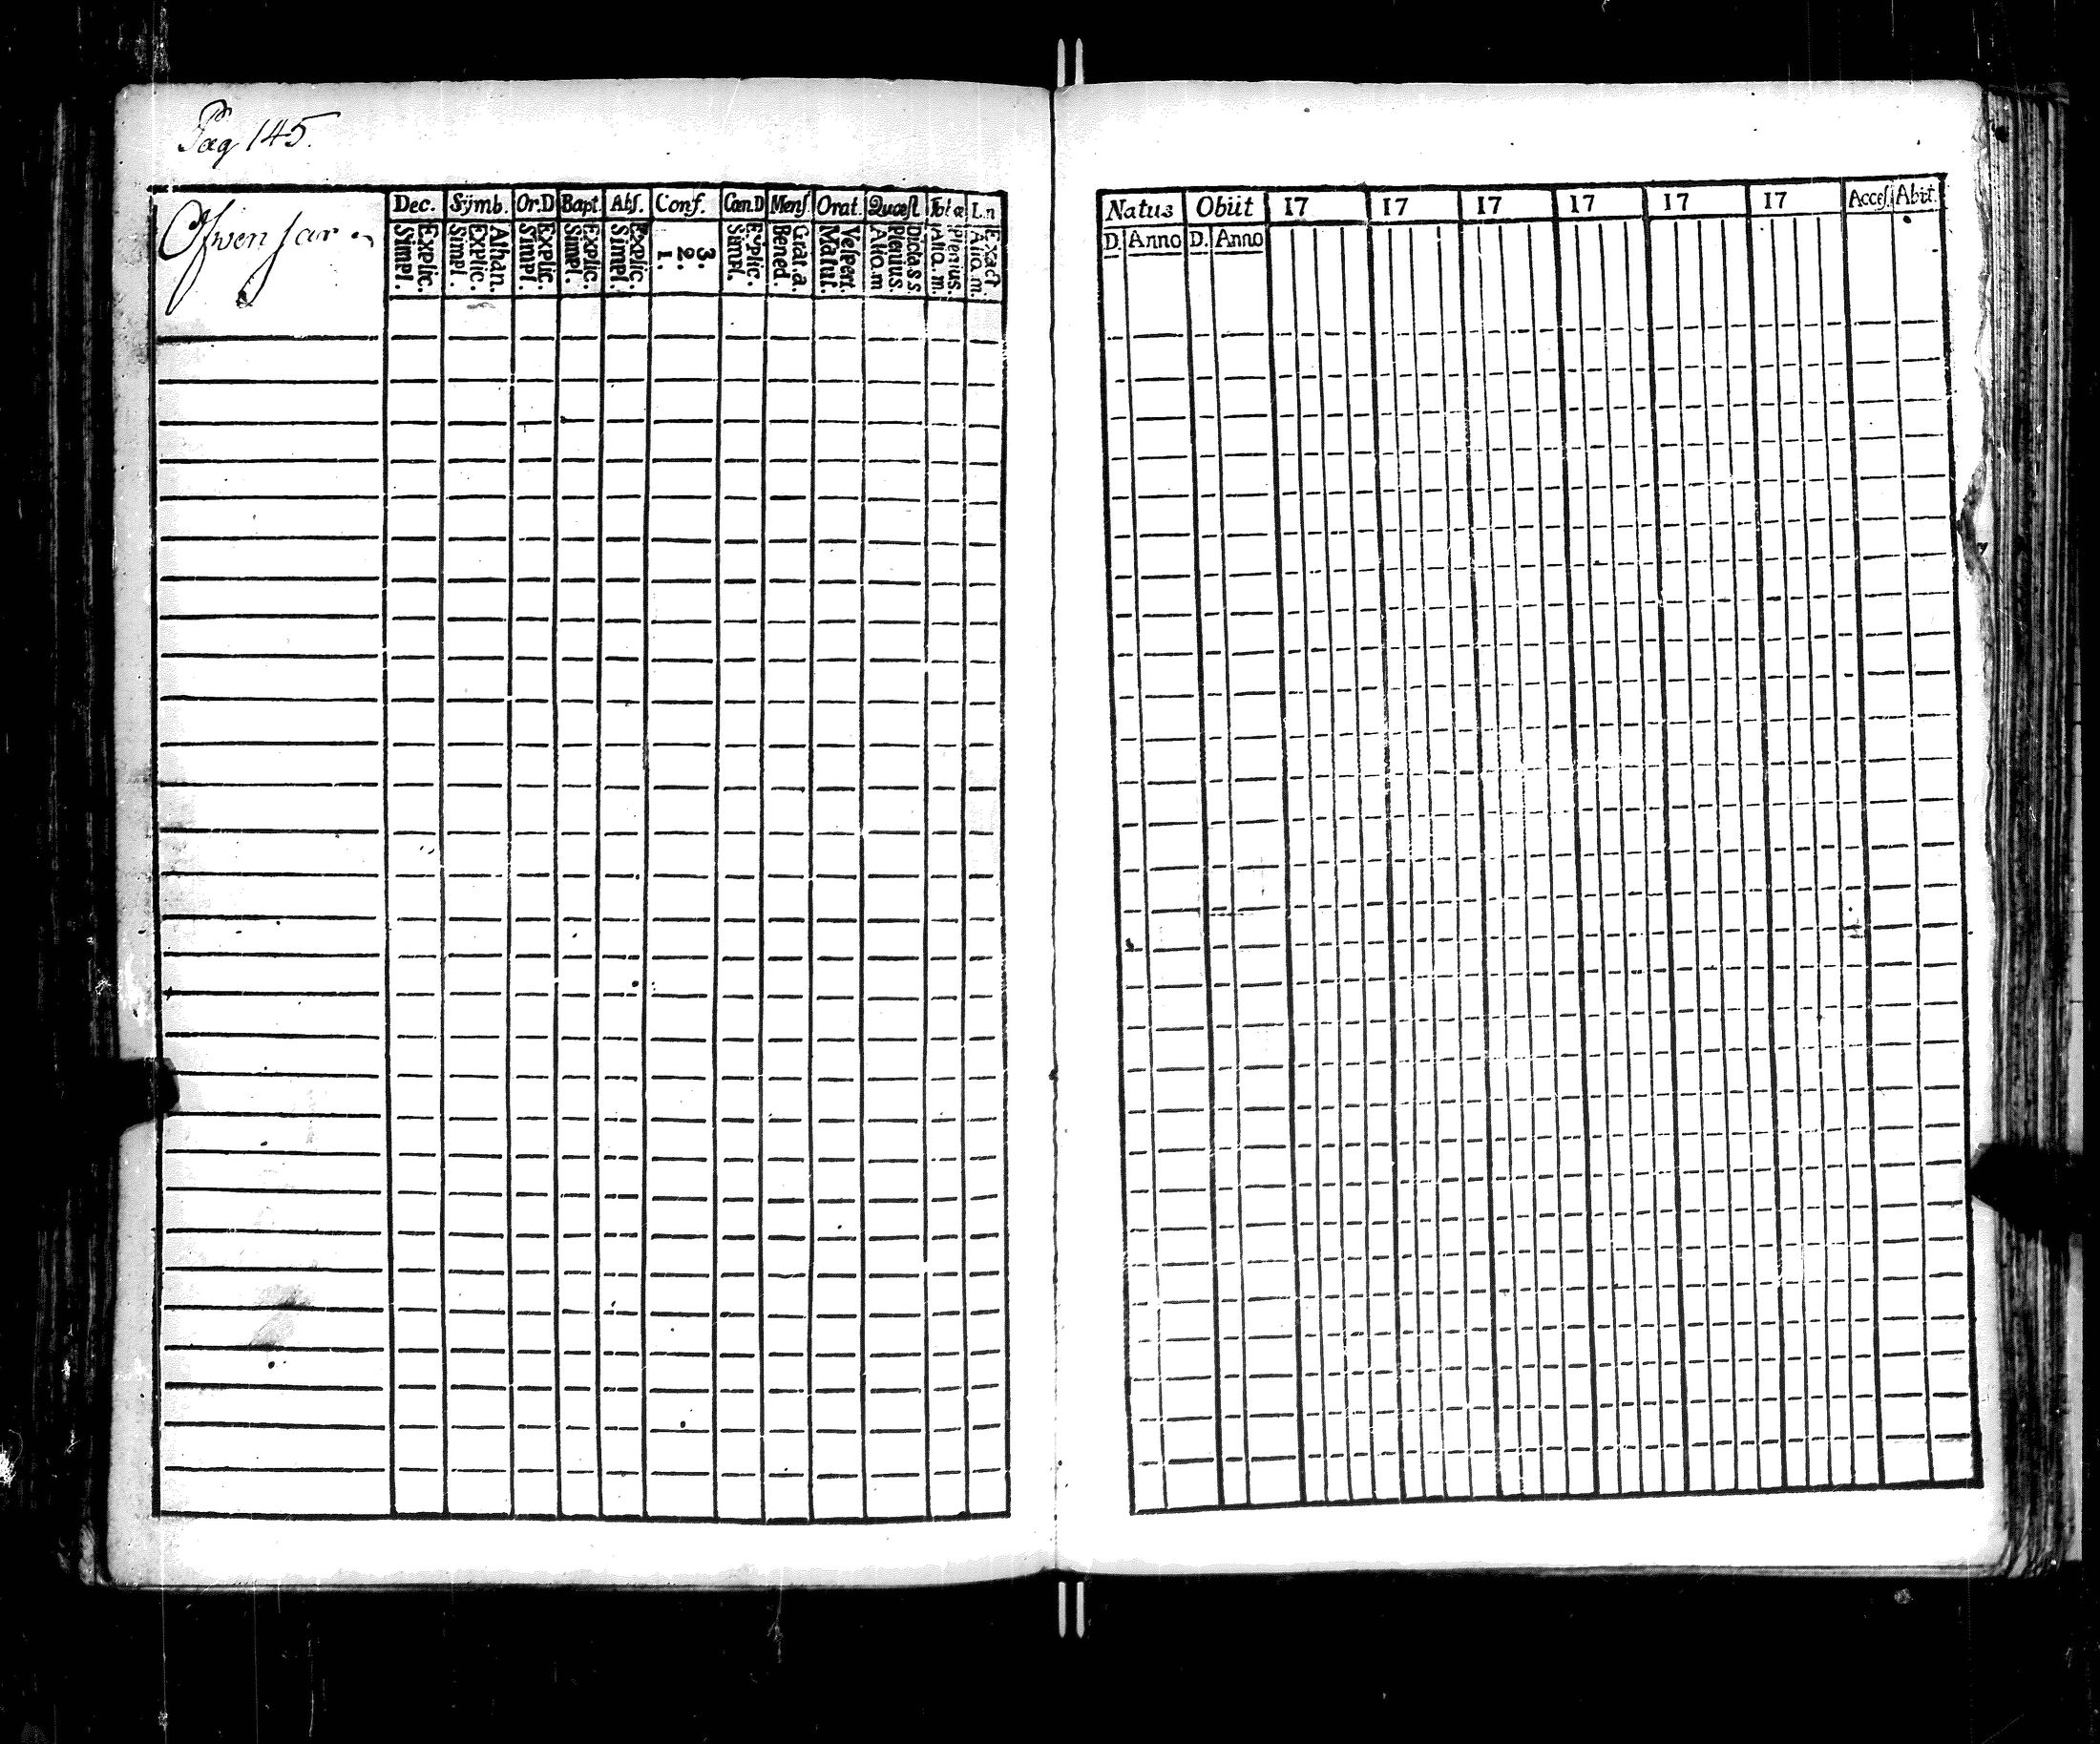 Pag 145.
Dec. Sÿmb. Or.D Bapt. Abſ. Conf. Cœn.D Menſ Orat. Quæſt Tab æ L.n
Ofwen
Explic. Simpl.
Athan. Explic. Simpl.
Explic. Simpl.
Explic. Simpl.
Explic. Simpl.
3. 2. 1.
Explic. Simpl.
Grat.a. Bened.
Veſpert. Matut.
Dicta.s s. Plenius. Aliq.m
Plenius. Aliq.m.
Exact. Aliq.m.
Natus Obiit 17 17 17 17 17 17 Acceſ. Abiit.
D. Anno D. Anno